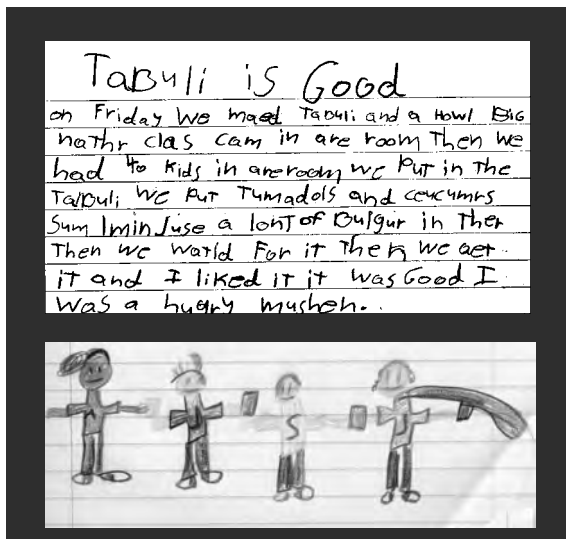 TaBuli is Good
on Friday We maed Tabuli and a Howl Big
nathr clas cam in are room Then we
had 40 kids in areroom we Put in the
Tabuli we put Tumadols and ceucumrs
Sum lminJuse a lont of Bulgur in Ther
Then we watid For it Then we aet
it and I liked it it was Good I
was a hugry mushen.
A
S
J